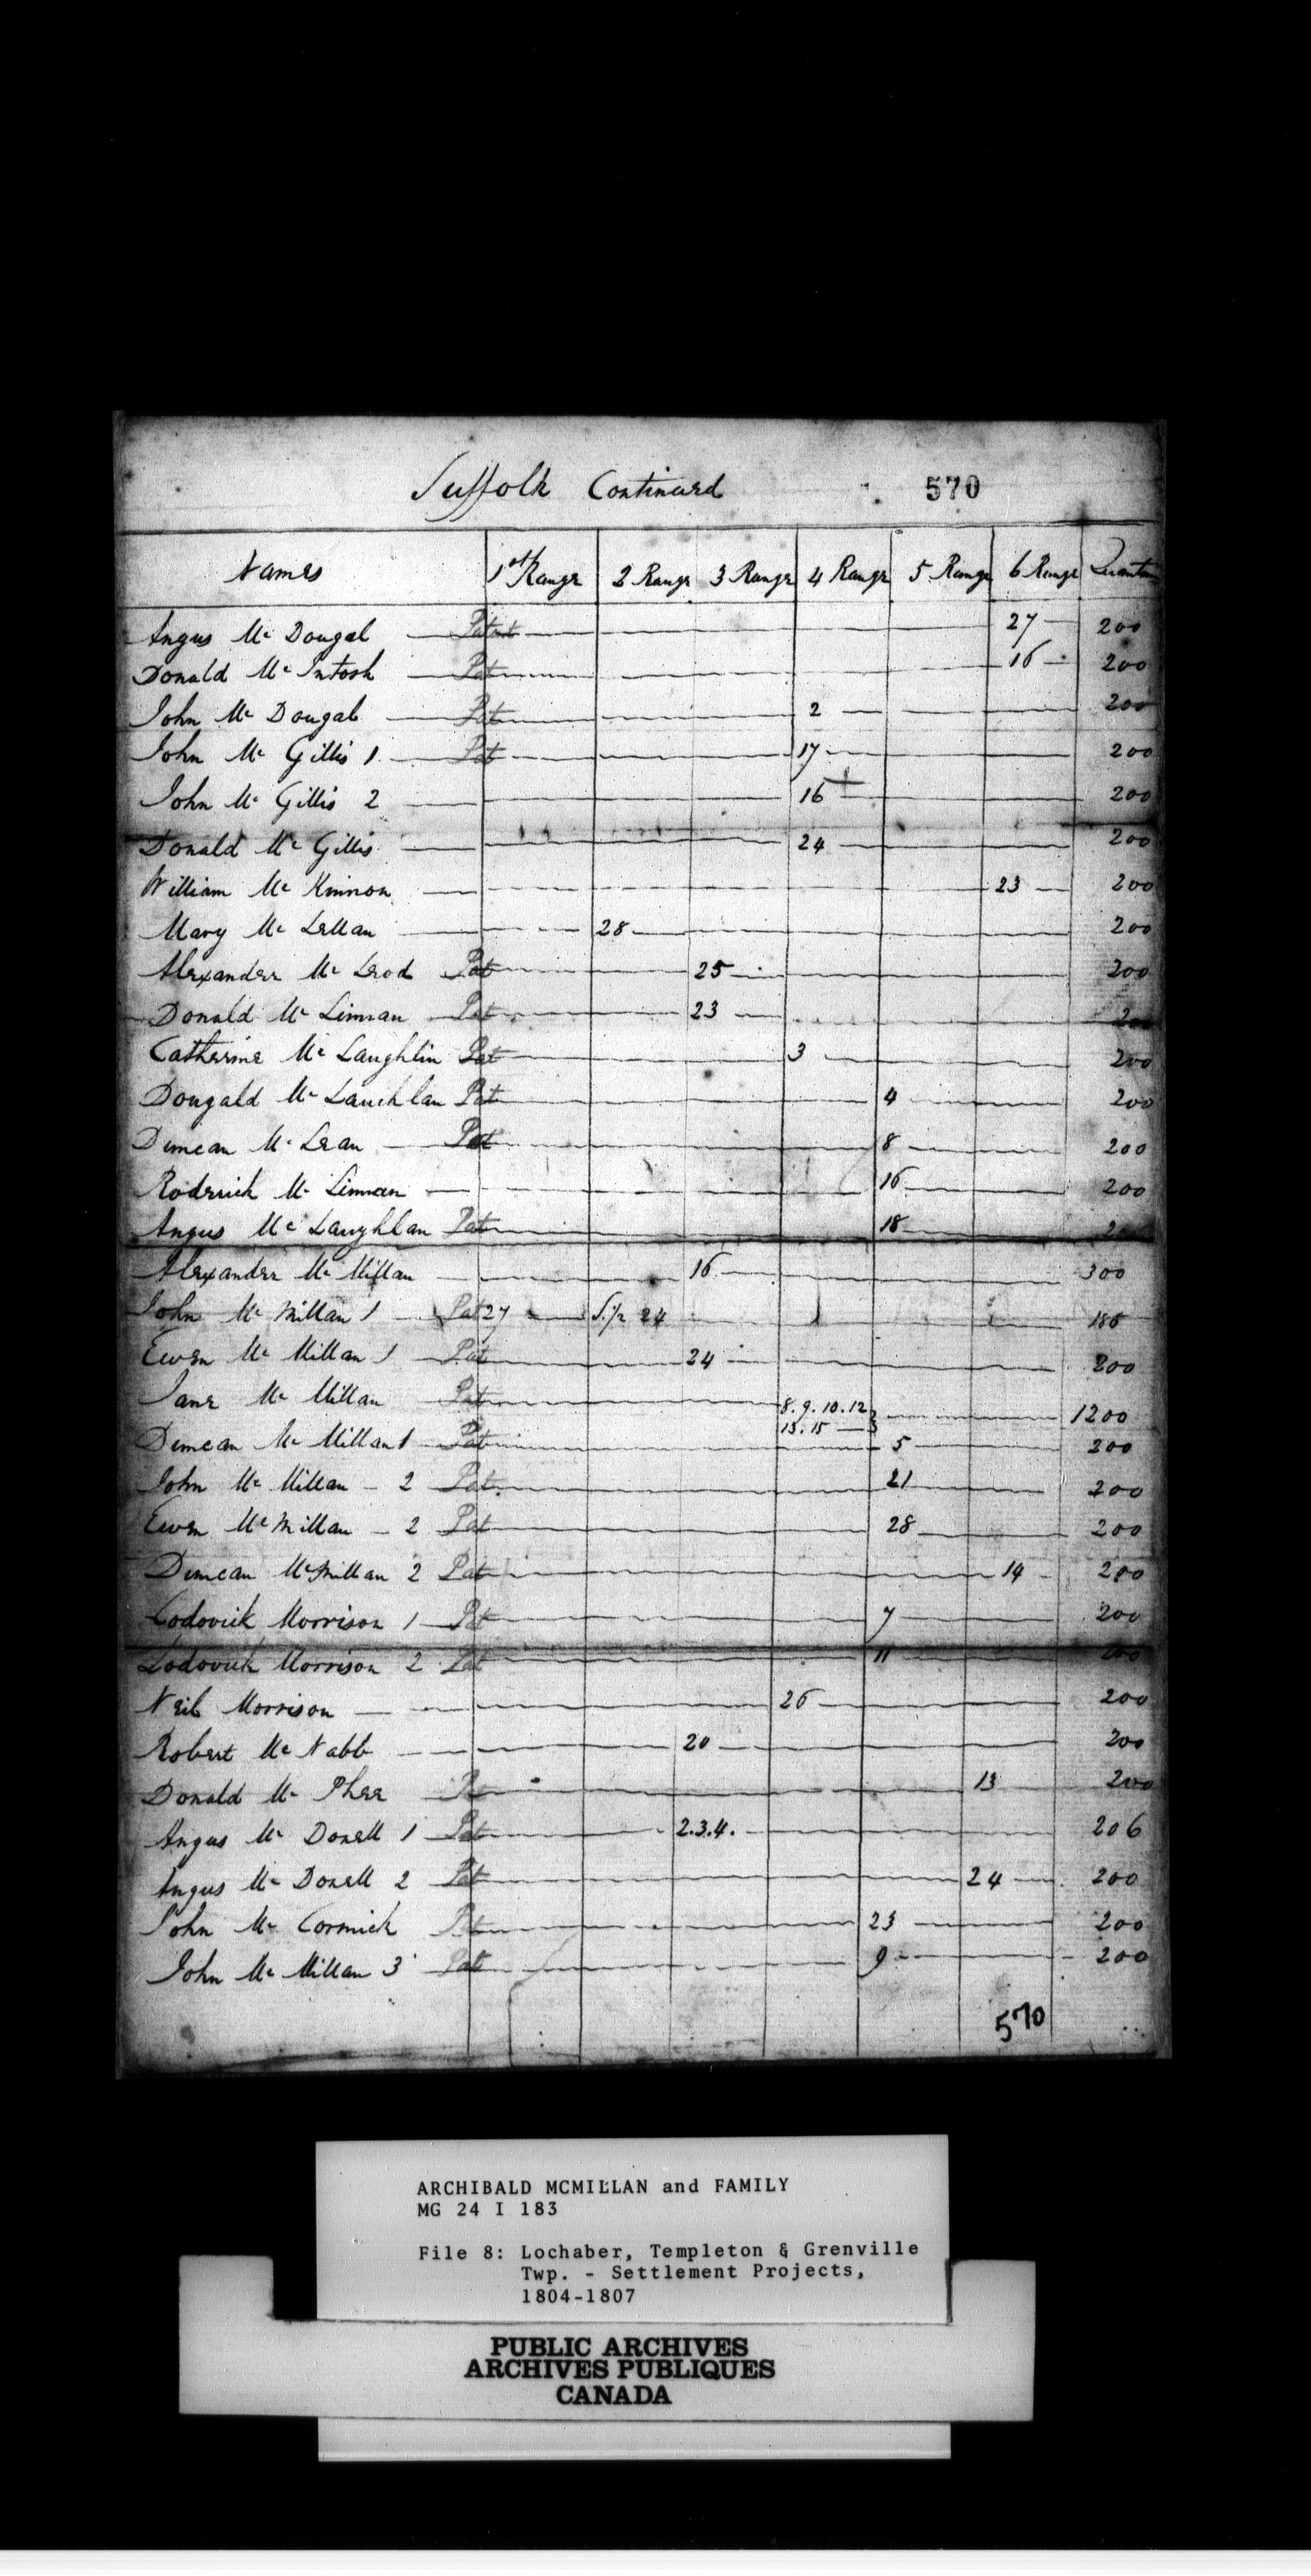 Suffolk Continued 570
Names 1st Range 2 Range 3 Range 4 Range 5 Range 6 Range Quantum
Angus Mc Dougal Patent 27 200
Donald Mc Intosh Pat 16 200
John Mc Dougal Pat 2 200
John Mc Gillis 1 Pat 17 200
John Mc Gillis 2 16 200
Donald Mc Gillis 24 200
William Mc Kinnon 23 200
Mary Mc Lellan 28 200
Alexander Mc Leod Pat 25 200
Donald Mc Linnan Pat 23 200
Catherine Mc Laughlin Pat 3 200
Dougald Mc Lauchlan Pat 4 200
Duncan Mc Lean Pat 8 200
Roderick Mc Linnan 16 200
Angus Mc Laughlan Pat 18
Alexander Mc Millan 16 300
John Mc Millan 1 Pat 27 S.½ 24
Ewen Mc Millan 1 Pat 24 200
Jane Mc Millan Pat 8. 9. 10. 12
13. 15 1200
Duncan Mc Millan 1 Pat 5 200
John Mc Millan 2 Pat 21 200
Ewen Mc Millan 2 Pat 28 200
Duncan McMillan 2 Pat 14 200
Lodovick Morrison 1 Pat 7 200
Lodovick Morrison 2 Pat 11 200
Neil Morrison 26 200
Robert Mc Nabb 20 200
Donald Mc Phee 13 200
Angus Mc Donell 1 Pat 2.3.4. 206
Angus Mc Donell 2 Pat 24 200
John Mc Cormick Pat 23 200
John Mc Millan 3 Pat 9 200
570
ARCHIBALD MCMILLAN and FAMILY
MG 24 I 183
File 8: Lochaber, Templeton & Grenville
Twp. - Settlement Projects,
1804-1807
PUBLIC ARCHIVES
ARCHIVES PUBLIQUES
CANADA